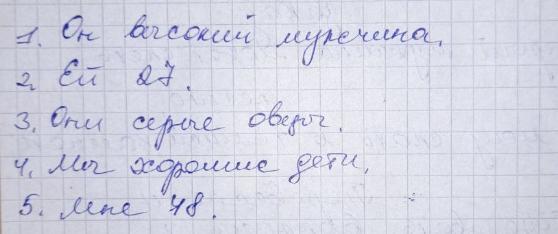 1. Он высокий мужчина.
2. Ей 27.
3. Они серые овцы.
4. Мы хорошие дети.
5. Мне 48.